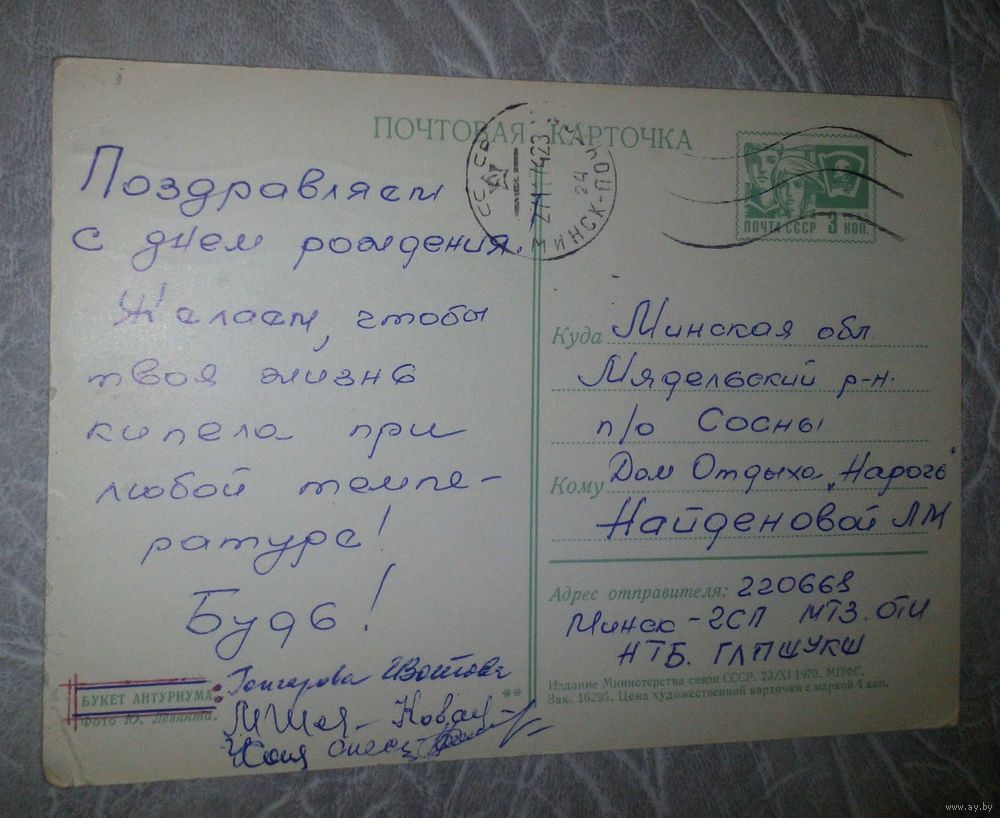 ПОЧТОВАЯ КАРТОЧКА
СССР
МИНСК-ПОЧ
24
ПОЧТА СССР 3 КОП.
Поздравляем
с днем рождения.
Желаем, чтобы
твоя жизнь
кипела при
любой темпе-
ратуре!
Будь!
БУКЕТ АНТУРИУМА
Фото Ю. Левянта.
Гончарова
**
Куда Минская обл
Мядельский р-н.
п/о Сосны
Кому Дом Отдыха „Нарочь"
Найденовой ЛМ
Адрес отправителя: 220668
Минск-2СП МТЗ. ОТИ
НТБ.
Издание Министерства связи СССР. 23/XI 1970. МПФГ.
Зак. 16295. Цена художественной карточки с маркой 4 коп.
www.ay.by